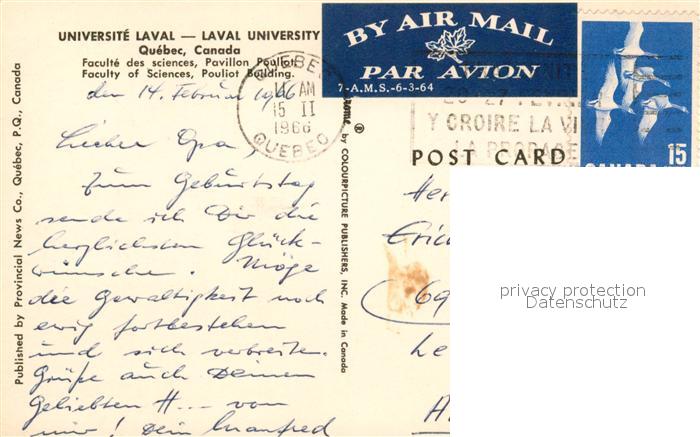 UNIVERSITÉ LAVAL — LAVAL UNIVERSITY
Québec, Canada
Faculté des sciences, Pavillon Pouliot
Faculty of Sciences, Pouliot Building.
den 14. Februar 1966
Lieber Opa,
Zum Geburtstag
sende ich Dir die
herzlichsten Glück-
wünsche. Möge
die Gewaltigkeit noch
ewig fortbestehen
und sich verbreiten.
Grüße auch Deinen
geliebten H... von
mir! Dein Manfred
Published by Provincial News Co., Québec, P.Q., Canada
by COLOURPICTURE PUBLISHERS, INC. Made in Canada
®
QUEBEC
AM
15 II
1966
QUEBEC
BY AIR MAIL
PAR AVION
7-A.M.S.-6-3-64
Y CROIRE LA VI
CANADA 15
POST CARD
Her
Eric
69
Le
privacy protection
Datenschutz